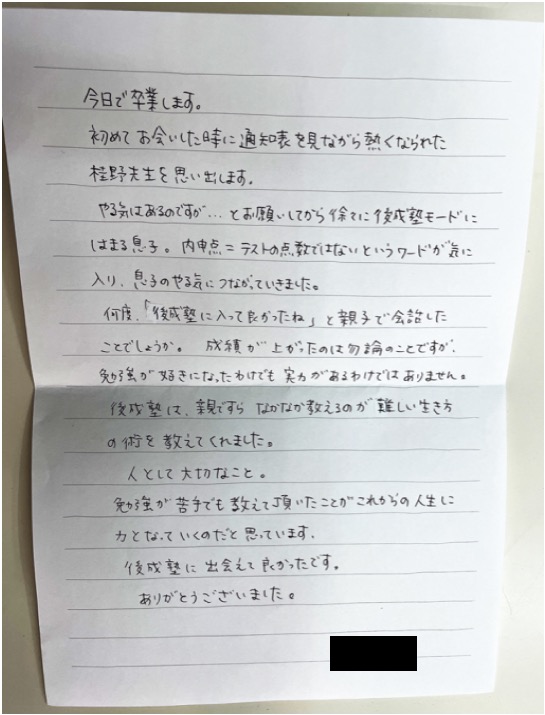 今日で卒業します。
初めてお会いした時に通知表を見ながら熱くなられた
桂野先生を思い出します。
やる気はあるのですが…とお願いしてから徐々に後成塾モードに
はまる息子。内申点=テストの点数ではないというワードが気に
入り、息子のやる気につながっていきました。
何度、「後成塾に入って良かったね」と親子で会話した
ことでしょうか。成績が上がったのは勿論のことですが、
勉強が好きになったわけでも実力があるわけではありません。
後成塾は、親ですらなかなか教えるのが難しい生き方
の術を教えてくれました。
人として大切なこと。
勉強が苦手でも教えて頂いたことがこれからの人生に
力となっていくのだと思っています。
後成塾に出会えて良かったです。
ありがとうございました。